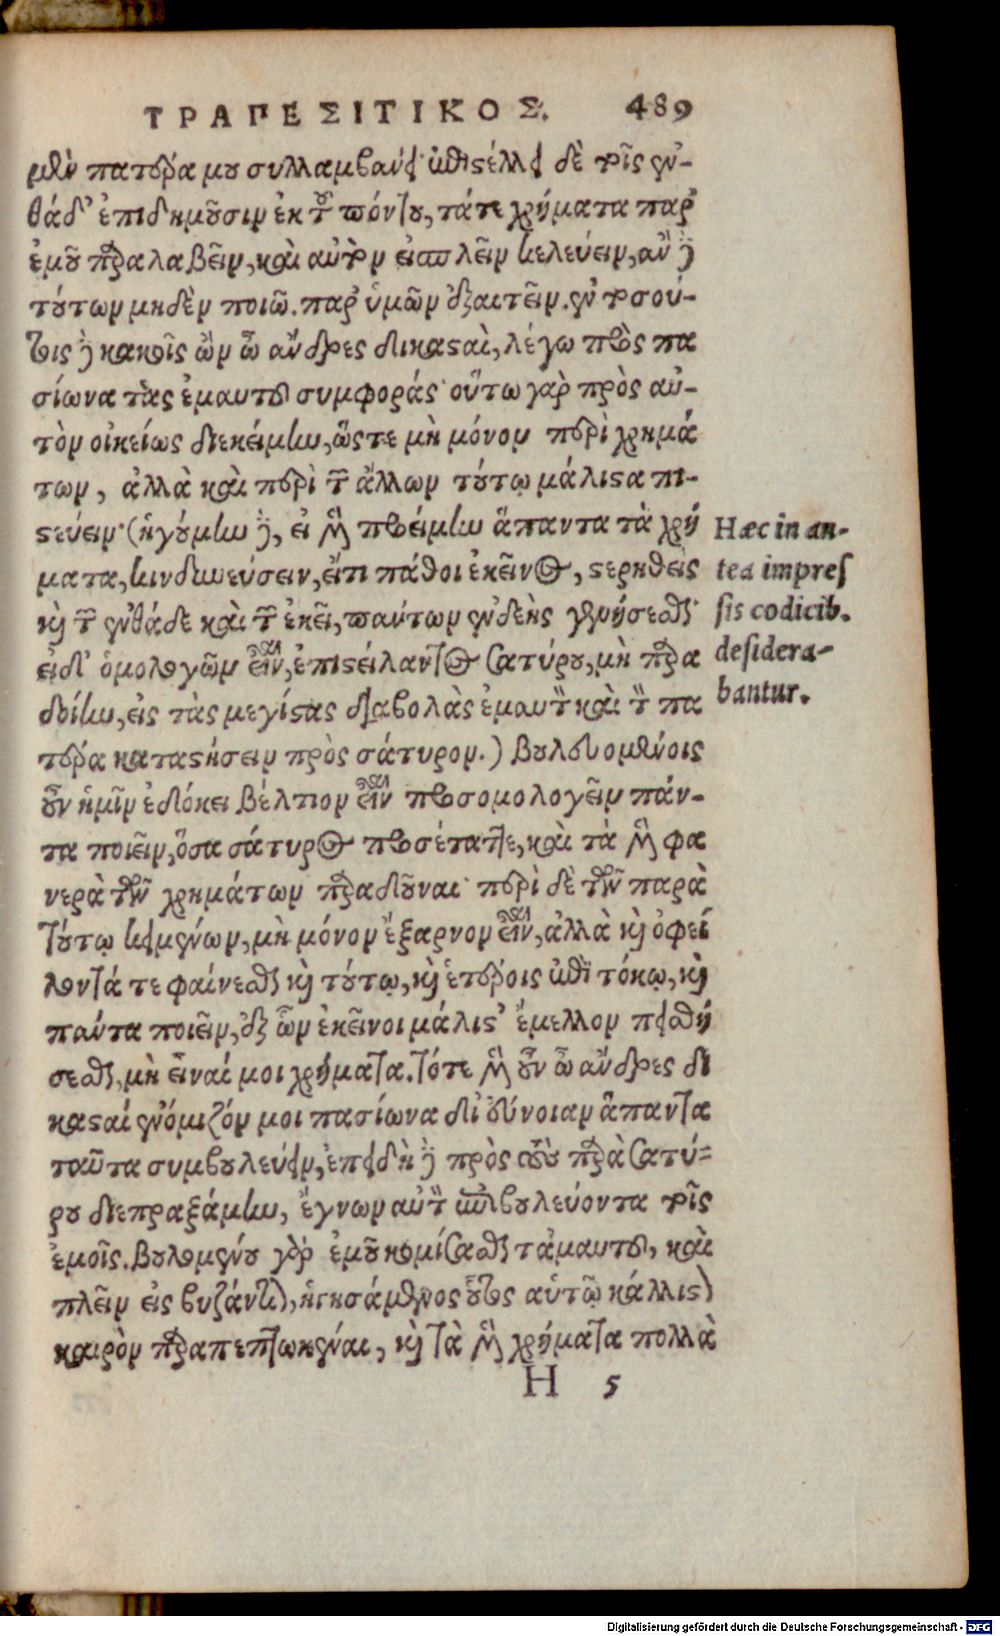 ΤΡΑΠΕΣΙΤΙΚΟΣ. 489
μὲν πατέρα μου συλλαμβάνει· ἐπιστέλλει δὲ τοῖς ἐν-
θάδ' ἐπιδημοῦσιν ἐκ τοῦ πόντου, τάτε χρήματα παρ'
ἐμοῦ παραλαβεῖν, καὶ αὐτὸν εἰσπλεῖν κελεύειν, ἂν δὲ
τούτων μηδὲν ποιῶ. παρ' ὑμῶν ἐξαιτεῖν. ἐν τοσού-
τοις δὲ κακοῖς ὢν ὦ ἄνδρες δικασταὶ, λέγω πρὸς πα
σίωνα τὰς ἐμαυτοῦ συμφοράς· οὕτω γὰρ πρὸς αὐ-
τὸν οἰκείως διεκείμην, ὥστε μὴ μόνον περὶ χρημά
των, ἀλλὰ καὶ περὶ τῶν ἄλλων τούτῳ μάλιστα πι-
στεύειν· (ἡγούμην δὲ, εἰ μὲν προείμην ἅπαντα τὰ χρή
ματα, κινδυνεύσειν, εἴτι πάθοι ἐκεῖνος, στερηθεὶς
καὶ τῶν ἐνθάδε καὶ τῶν ἐκεῖ, πάντων ἐνδεὴς γενήσεσθαι·
εἰδ' ὁμολογῶν εἶναι, ἐπιστείλαντος Σατύρου, μὴ παρα
δοίην, εἰς τὰς μεγίστας διαβολὰς ἐμαυτὸν καὶ τὸν πα
τέρα καταστήσειν πρὸς σάτυρον.) βουλευομένοις
οὖν ἡμῖν ἐδόκει βέλτιον εἶναι προσομολογεῖν πάν-
τα ποιεῖν, ὅσα σάτυρος προσέταττε, καὶ τὰ μὲν φα
νερὰ τῶν χρημάτων παραδοῦναι· περὶ δὲ τῶν παρὰ
τούτῳ κειμένων, μὴ μόνον ἔξαρνον εἶναι, ἀλλὰ καὶ ὀφεί
λοντά τε φαίνεσθαι καὶ τούτῳ, καὶ ἑτέροις ἐπὶ τόκῳ, καὶ
πάντα ποιεῖν, ἐξ ὧν ἐκεῖνοι μάλιστ' ἔμελλον πεισθή
σεσθαι, μὴ εἶναί μοι χρήματα. τότε μὲν οὖν ὦ ἄνδρες δι
κασταί ἐνόμιζόν μοι πασίωνα δι' εὔνοιαν ἅπαντα
ταῦτα συμβουλεύειν, ἐπειδὴ δὲ πρὸς τοὺς παρὰ Σατύ-
ρου διεπραξάμην, ἔγνων αὐτὸν ἐπιβουλεύοντα τοῖς
ἐμοῖς. βουλομένου γὰρ ἐμοῦ κομίσασθαι τἀμαυτοῦ, καὶ
πλεῖν εἰς βυζάντιον, ἡγησάμενος οὗτος αὑτῷ κάλλιστον
καιρὸν παραπεπτωκέναι, καὶ τὰ μὲν χρήματα πολλὰ
H 5
Hæc in an-
tea impres
sis codicib.
desidera-
bantur.
Digitalisierung gefördert durch die Deutsche Forschungsgemeinschaft - DFG